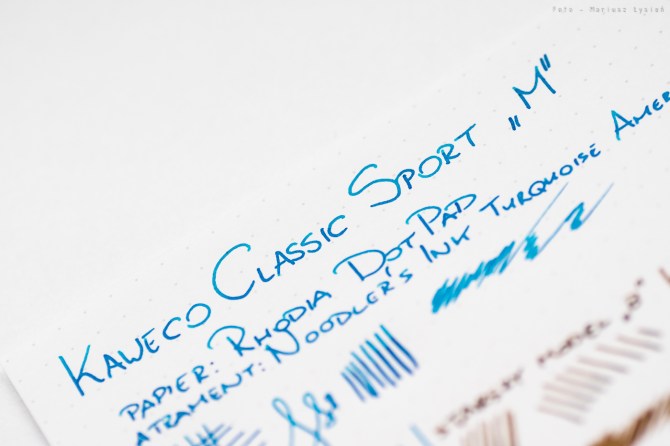 Foto - Mariusz Łysień
KAWECO CLASSIC SPORT „M"
PAPIER: RHODIA DOTPAD
ATRAMENT: NOODLER'S INK TURQUOISE
MODEL „B"